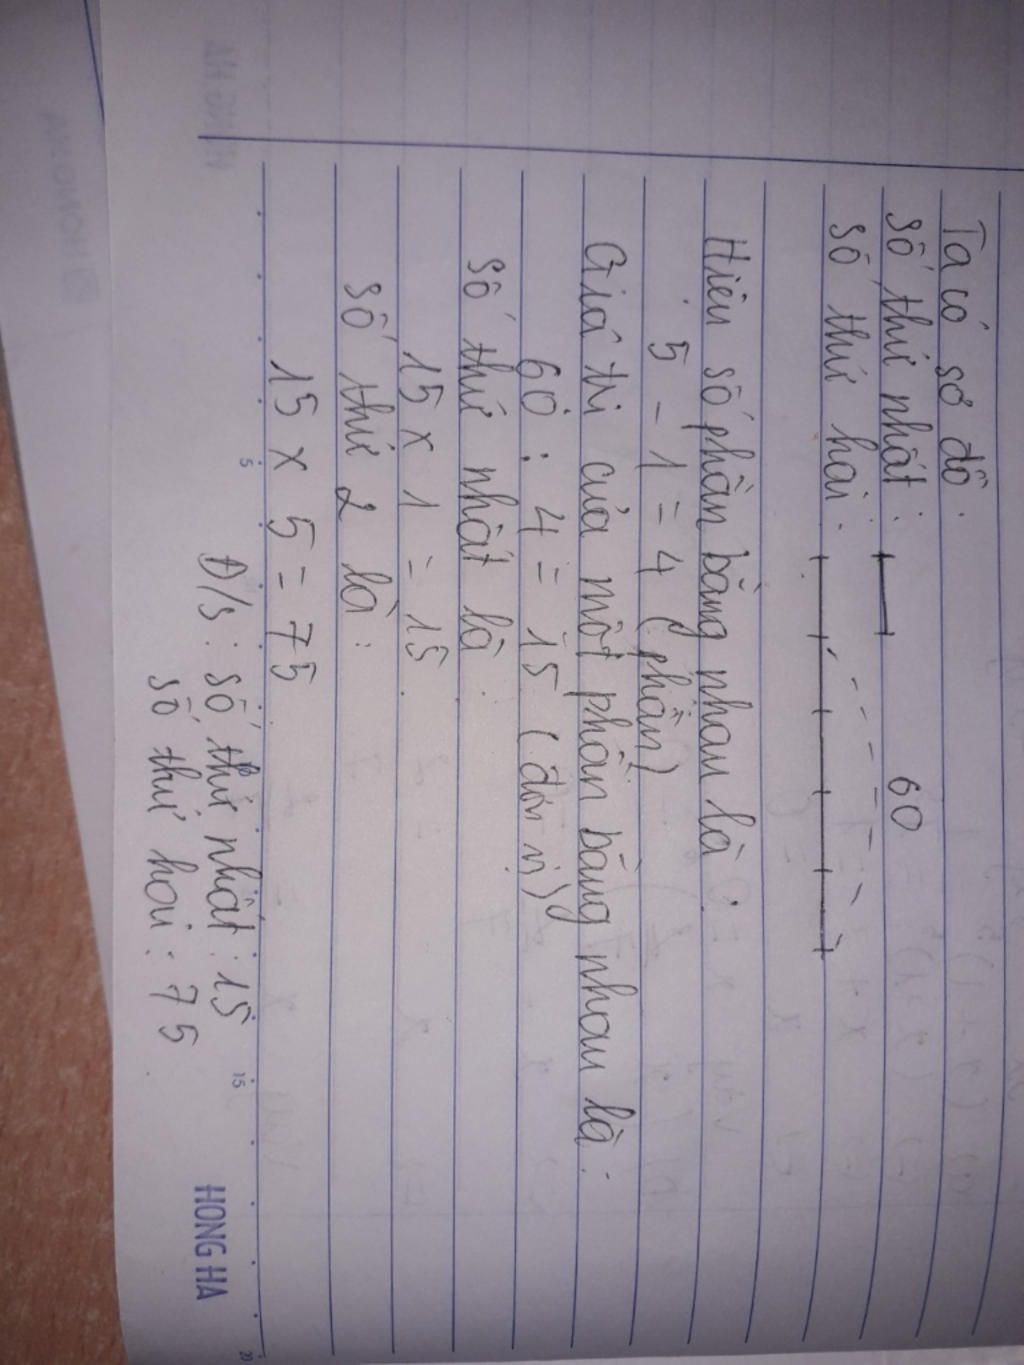 Ta có sơ đồ.
Số thứ nhất: 60
Số thứ hai:
Hiệu số phần bằng nhau là:
5 - 1 = 4 (phần)
Giá trị của một phần bằng nhau là:
60 : 4 = 15 (đơn vị)
Số thứ nhất là:
15 x 1 = 15
Số thứ 2 là:
15 x 5 = 75
Đ/s: Số thứ nhất: 15
Số thứ hai: 75
5
15
20
HONG HA